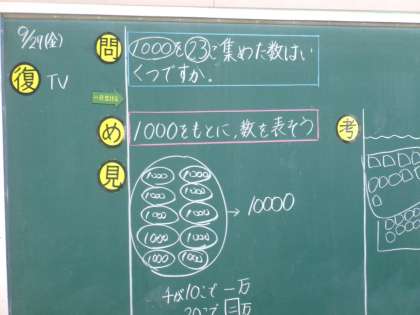 9/29(金)
復 TV
問
1000を23こ集めた数はい
くつですか。
め
1000をもとに,数を表そう
見
考
1000 1000
1000 1000
1000 1000
1000 1000
1000 1000
→ 10000
千が10こで 一万
20こで 二万